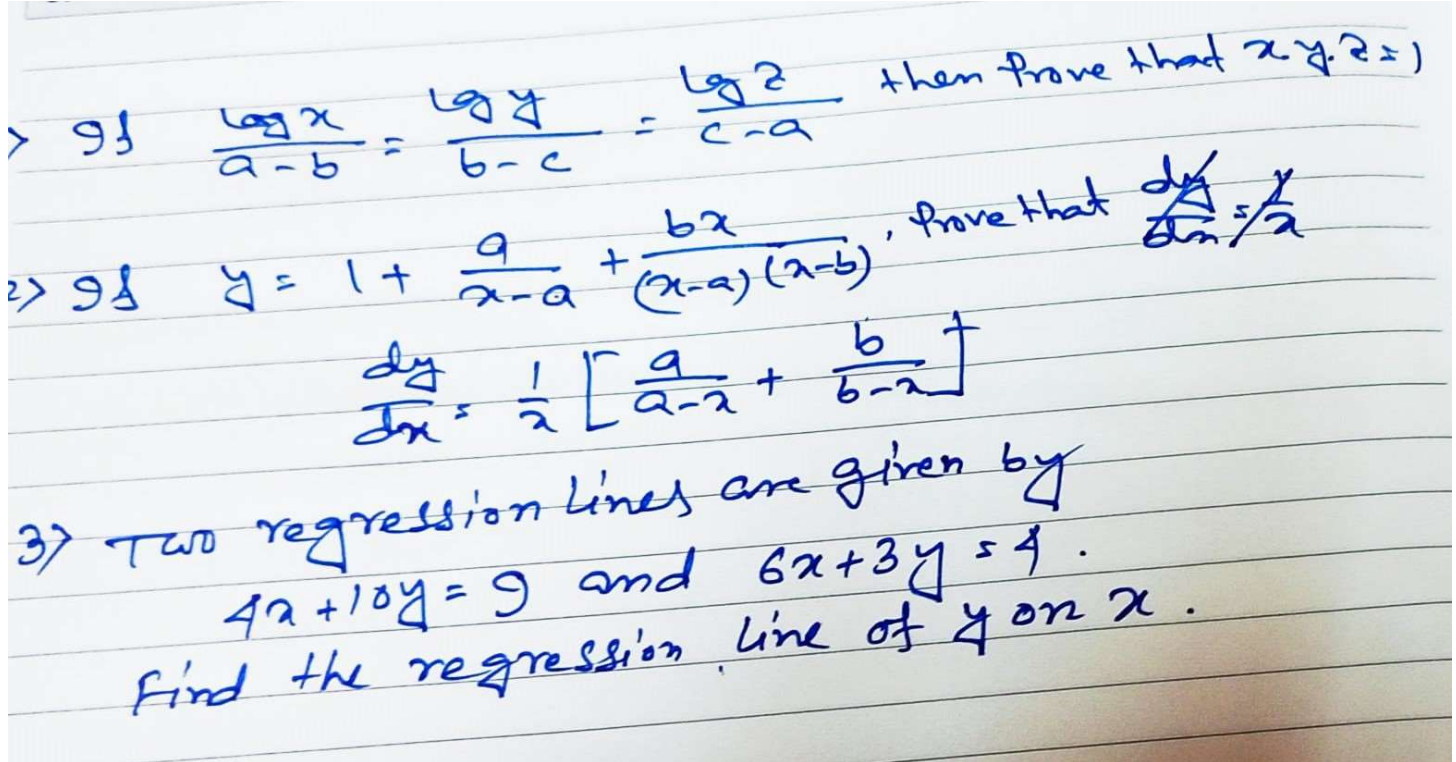 > If log x / a-b = log y / b-c = log z / c-a then Prove that x.y.z = 1
2> If y = 1 + a / x-a + bx / (x-a)(x-b), Prove that
dy/dx = 1/x [ a / a-x + b / b-x ]
3> Two regression lines are given by
4x+10y = 9 and 6x+3y = 4.
Find the regression line of y on x.